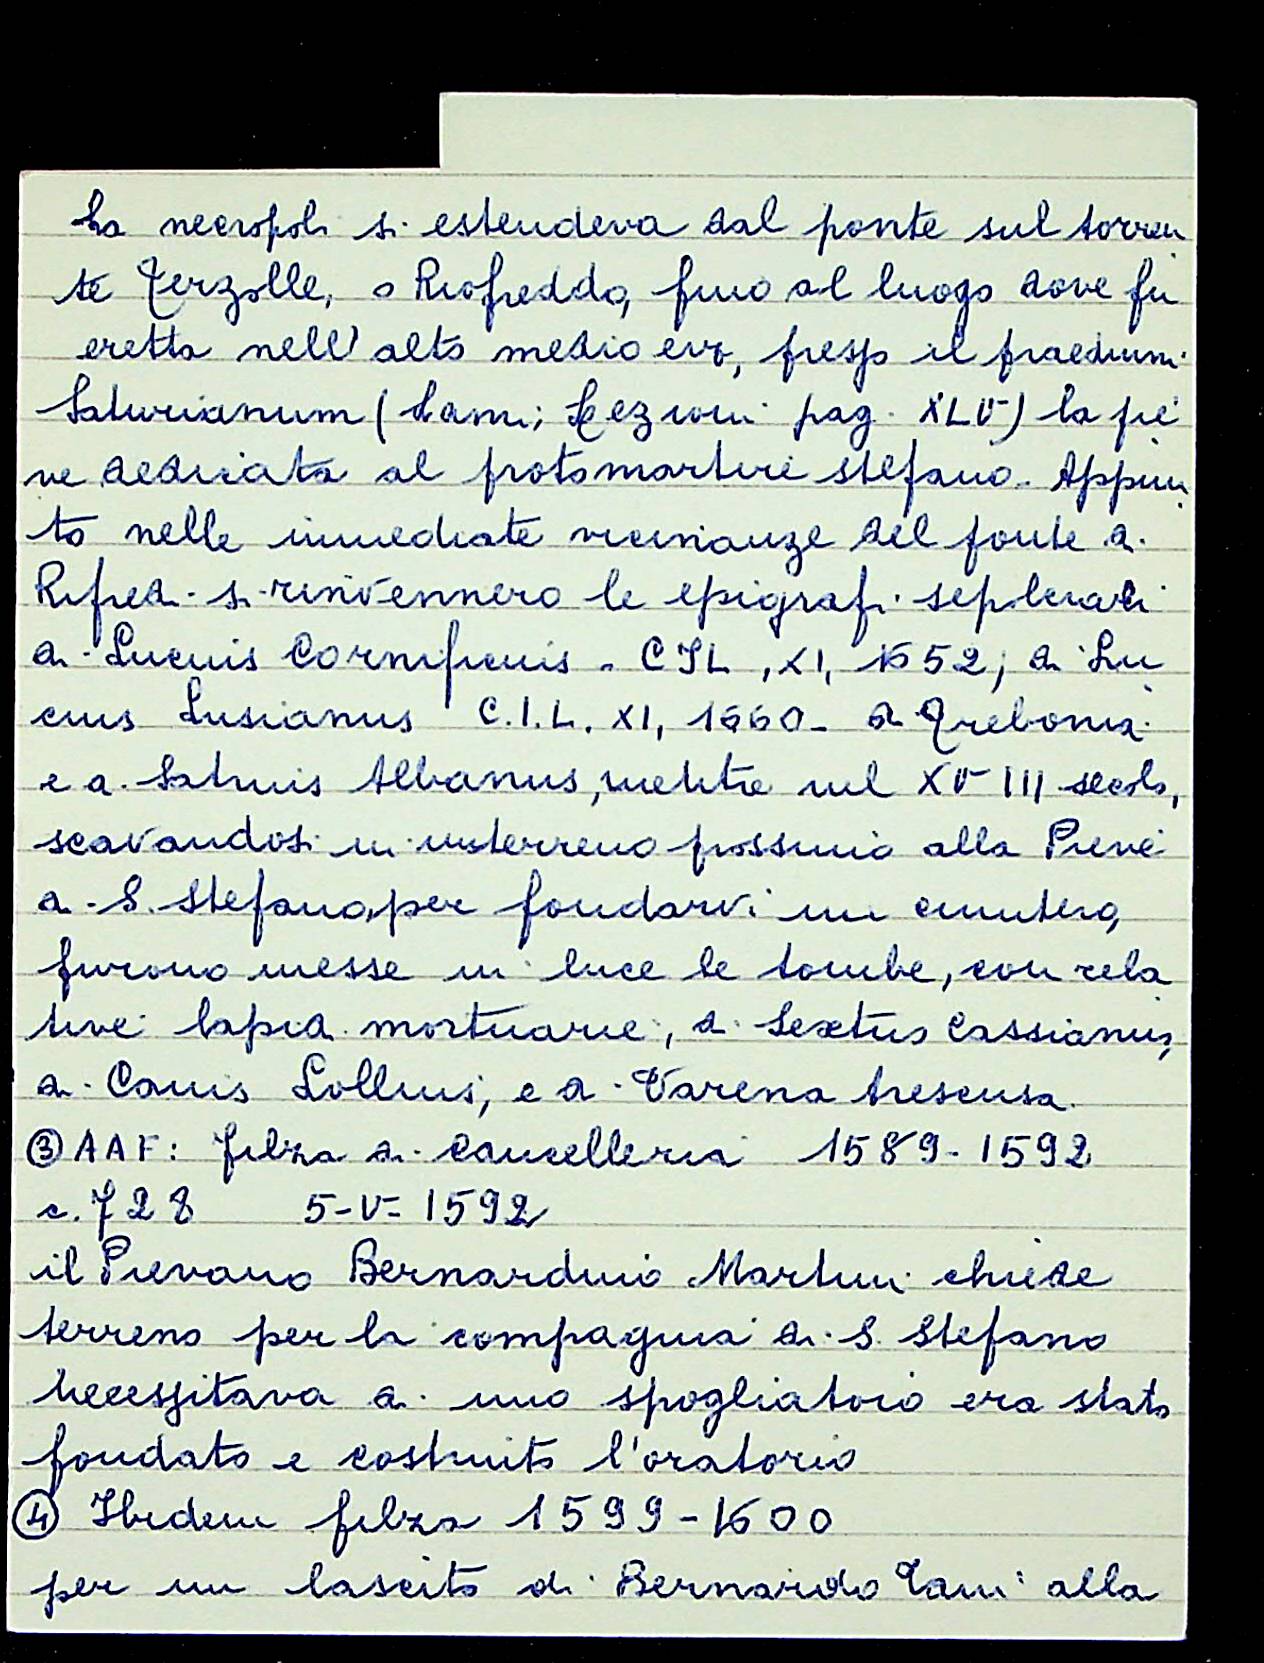 La necropoli si estendeva dal ponte sul torren
te Terzolle, o Riofreddo, fino al luogo dove fu
eretta nell'alto medio evo, presso il praedium
Saturianum (Lami; Lezioni pag. XLV) la pie
ve dedicata al protomartire Stefano. Appun
to nelle immediate vicinanze del ponte di
Rifredi si rinvennero le epigrafi sepolcrali
di Lucius Cornificius - CIL, XI, 1652; di Lu
cius Lusianus C.I.L. XI, 1660 - di Trebonia
e di Albanus, mentre nel XVIII secolo,
scavandosi in un terreno prossimo alla Pieve
di S. Stefano, per fondarvi un cimitero,
furono messe in luce le tombe, con rela
tive lapidi mortuarie, di Sextus Cassianus,
di Caius Lollius, e di Varena
③ AAF: filza di Cancelleria 1589-1592
c. 728 5-V-1592
il Pievano Bernardino Martini chiede
terreno per la compagnia di S. Stefano
necessitava di uno spogliatoio era stato
fondato e costruito l'oratorio
④ Ibidem filza 1599-1600
per un lascito di Bernardo alla